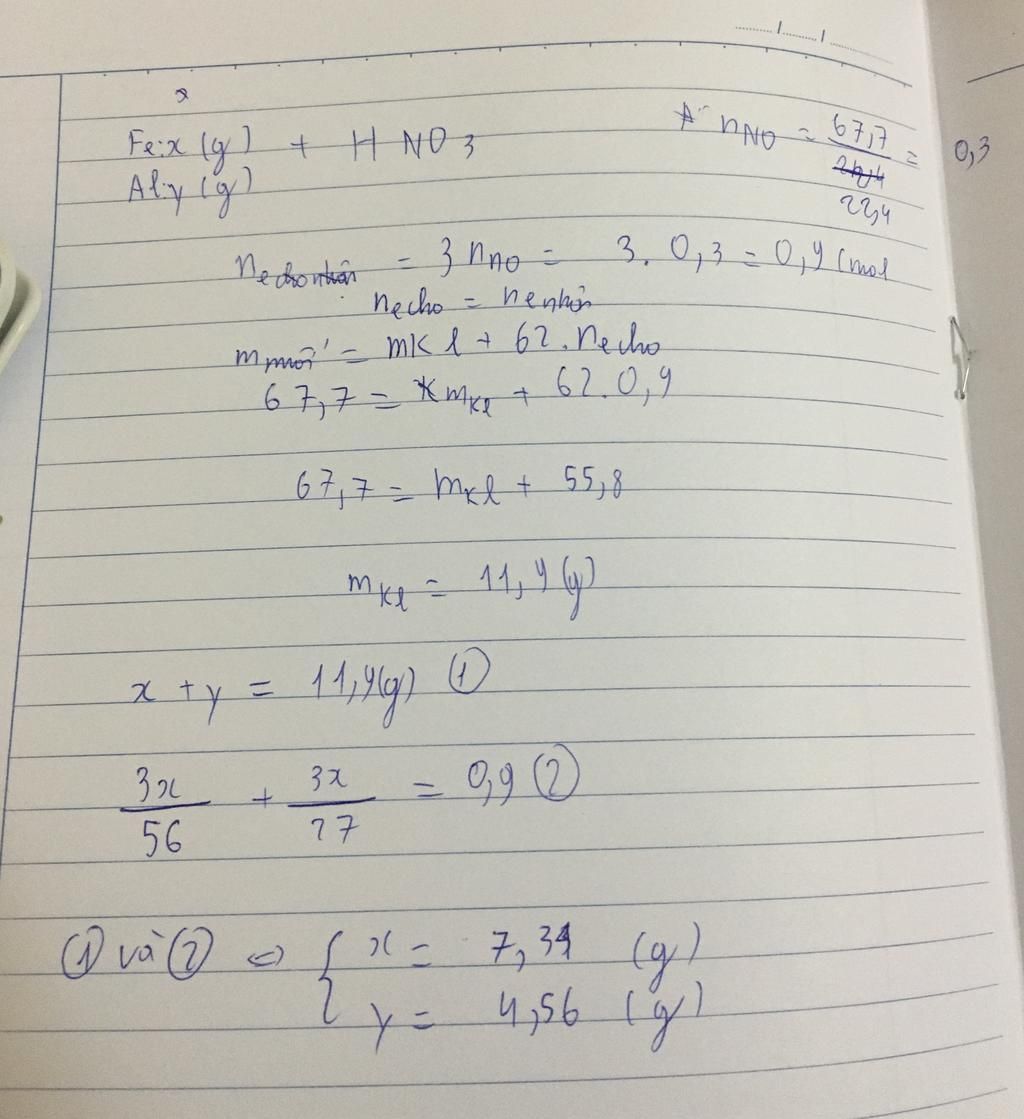 x
Fe: x (g) + HNO3
Al: y (g)
* nNO = 67,7 / 22,4 = 0,3
ne cho nhận = 3 nNO = 3. 0,3 = 0,9 (mol
ne cho = ne nhận
m muối = mKl + 62. ne cho
67,7 = mKl + 62. 0,9
67,7 = mKl + 55,8
mKl = 11,9 (g)
x + y = 11,9(g) ①
3x/56 + 3x/27 = 0,9 ②
① và ② ⇔ { x = 7,34 (g)
y = 4,56 (g)